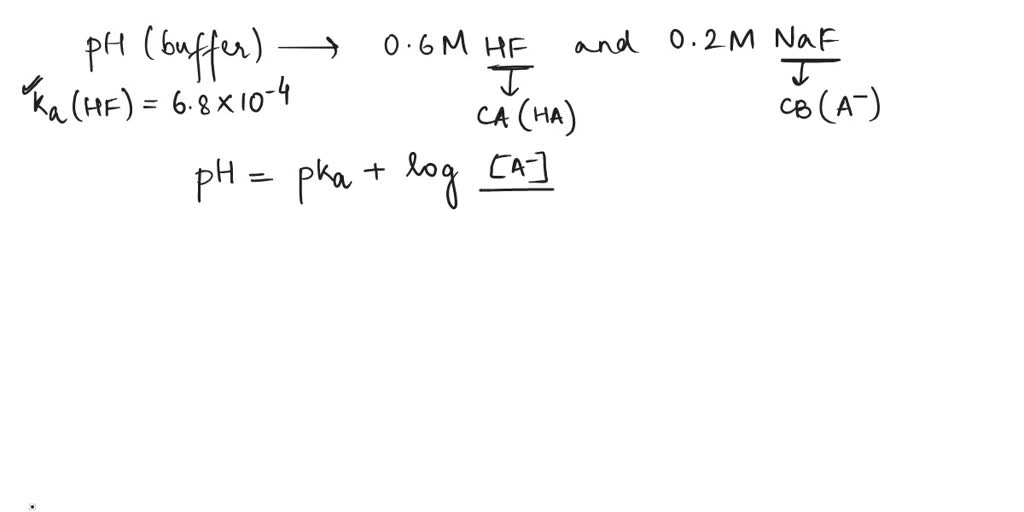 pH (buffer) ⟶ 0.6M HF and 0.2M NaF
✓Ka (HF) = 6.8×10⁻⁴
CA (HA)
CB (A⁻)
pH = pKa + log [A⁻]